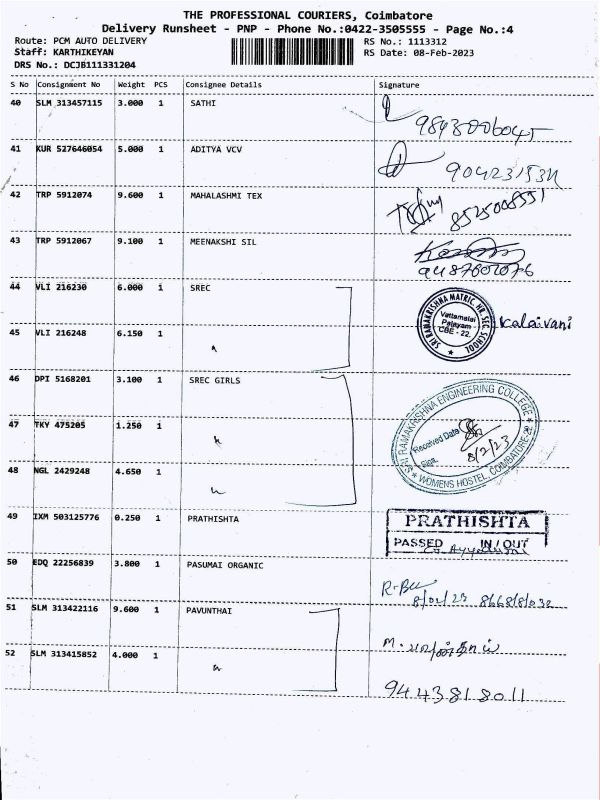 THE PROFESSIONAL COURIERS, Coimbatore
Delivery Runsheet - PNP - Phone No.:0422-3505555 - Page No.:4
Route: PCM AUTO DELIVERY RS No.: 1113312
Staff: KARTHIKEYAN RS Date: 08-Feb-2023
DRS No.: DCJB111331204
S No Consignment No Weight PCS Consignee Details Signature
40 SLM 313457115 3.000 1 SATHI
41 KUR 527646054 5.000 1 ADITYA VCV
42 TRP 5912074 9.600 1 MAHALASHMI TEX
8525008551
43 TRP 5912067 9.100 1 MEENAKSHI SIL
44 VLI 216230 6.000 1 SREC
SRI RAMAKRISHNA MATRIC. HR. SEC. SCHOOL
Vattamalai
Palayam
CBE - 22.
Kalaivani
45 VLI 216248 6.150 1
46 DPI 5168201 3.100 1 SREC GIRLS
SRI RAMAKRISHNA ENGINEERING COLLEGE
Received Date
8/2/23
Sign.
WOMENS HOSTEL, COIMBATORE-22
47 TKY 475205 1.250 1
48 NGL 2429248 4.650 1
49 IXM 503125776 0.250 1 PRATHISHTA
PRATHISHTA
PASSED IN / OUT
50 EDQ 22256839 3.800 1 PASUMAI ORGANIC
8/02/23
51 SLM 313422116 9.600 1 PAVUNTHAI
52 SLM 313415852 4.000 1
9443818011